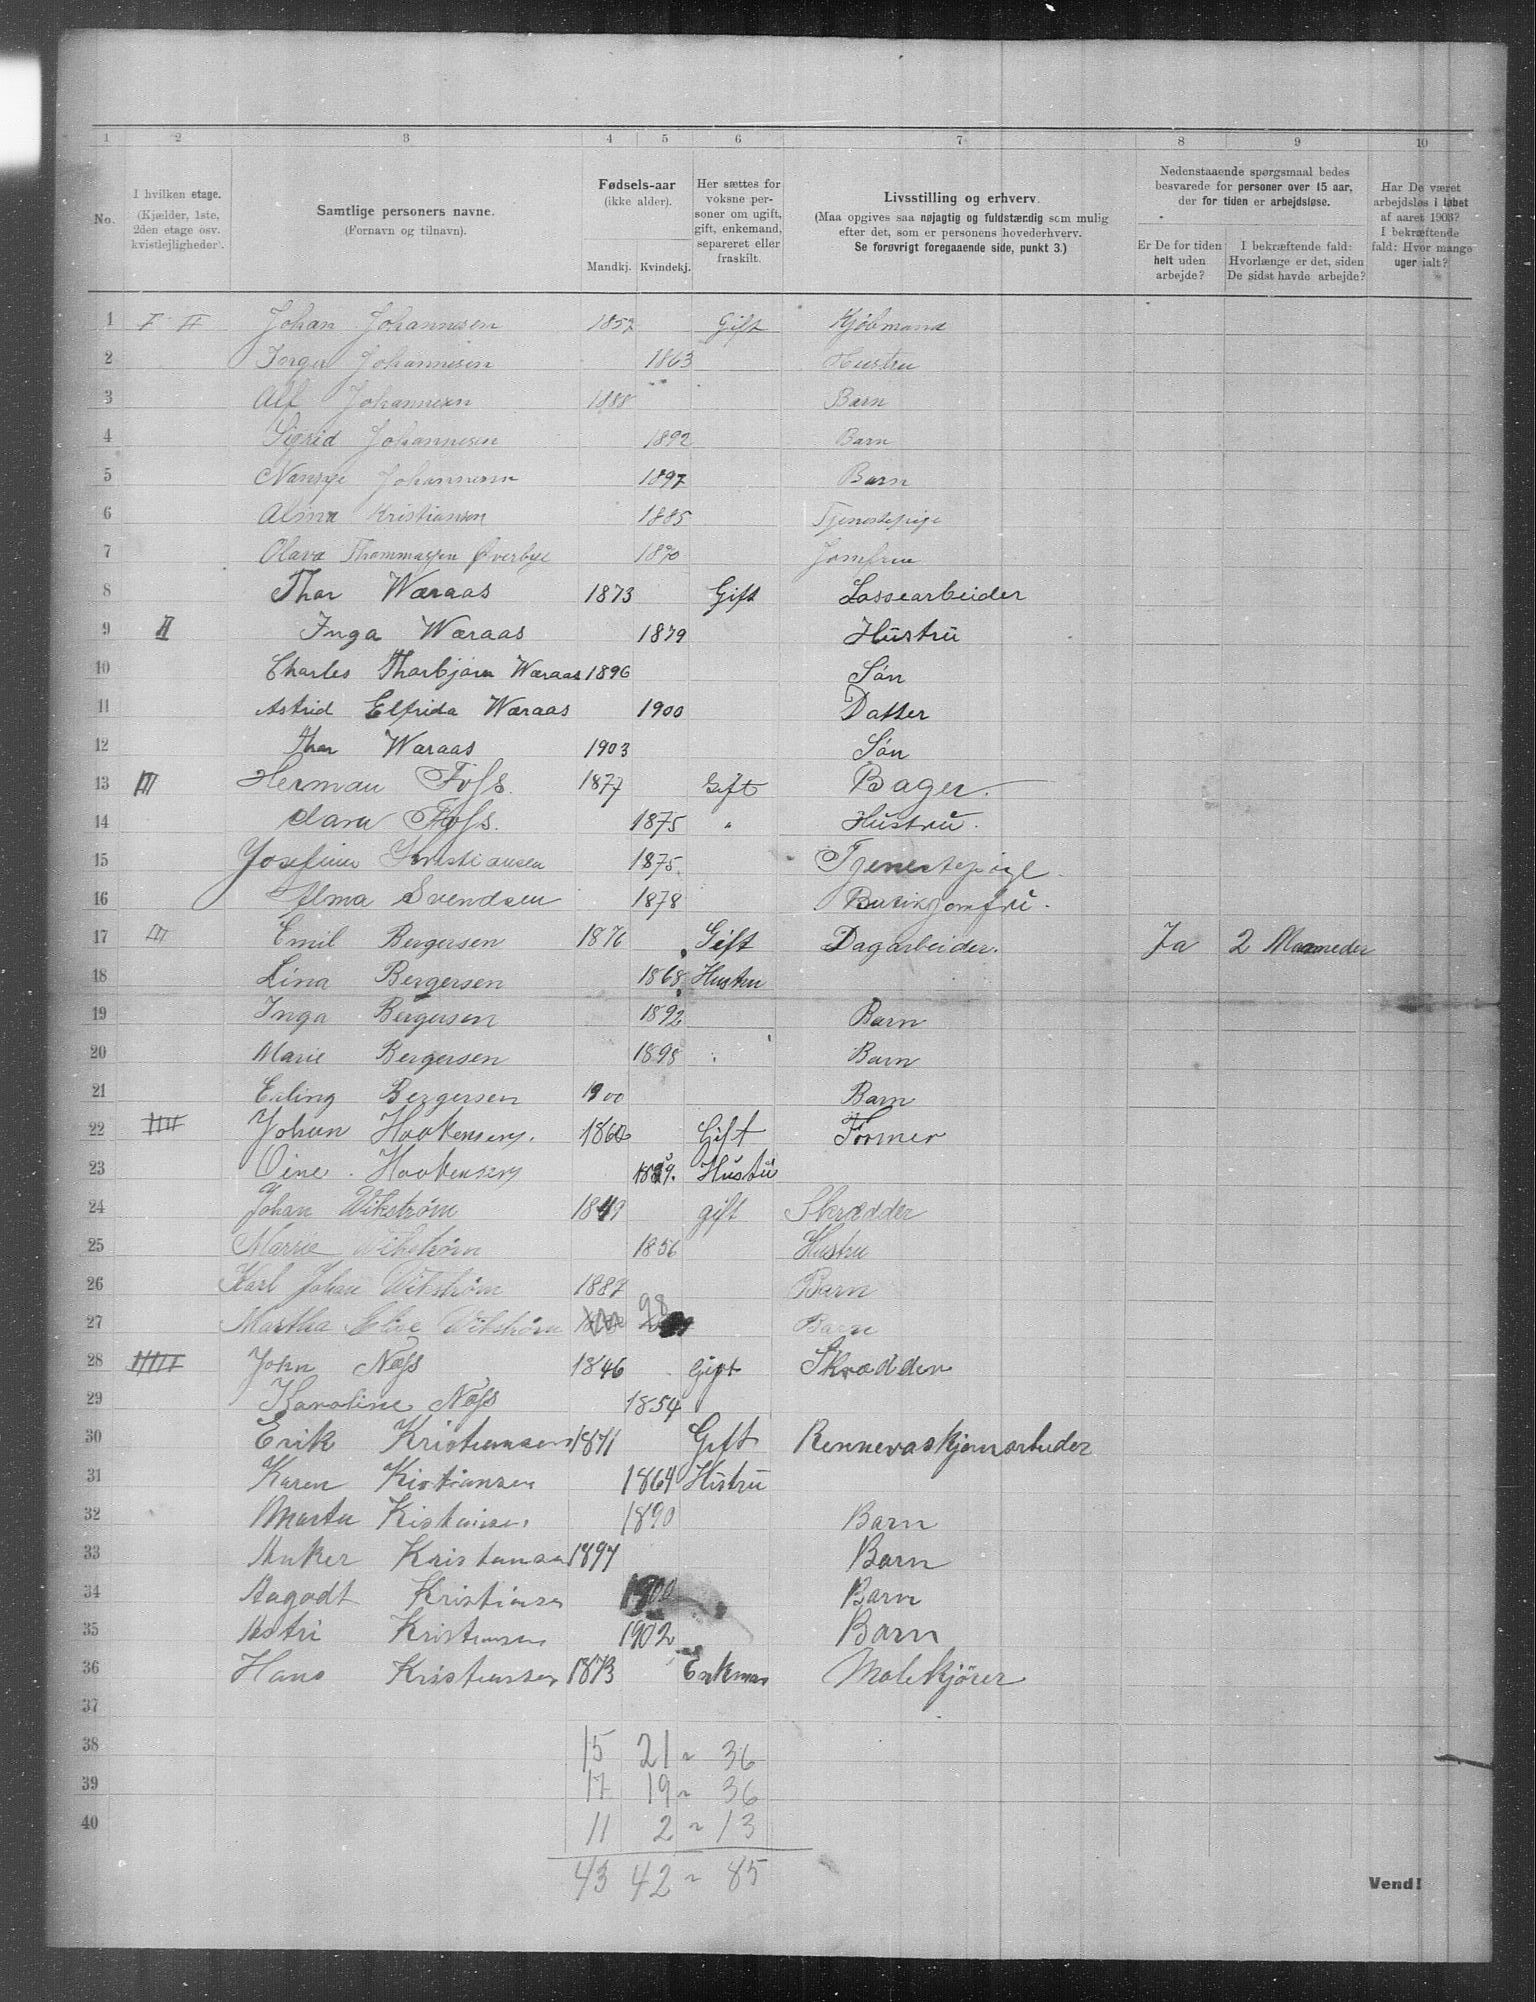 1 2 3 4 5 6 7 8 9 10
No.
I hvilken etage. (Kjælder, 1ste, 2den etage osv. kvistlejligheder).
Samtlige personers navne. (Fornavn og tilnavn).
Fødsels-aar (ikke alder). Mandkj. Kvindekj.
Her sættes for voksne personer om ugift, gift, enkemand, separeret eller fraskilt.
Livsstilling og erhverv. (Maa opgives saa nøjagtig og fuldstændig som mulig efter det, som er personens hovederhverv. Se forøvrigt foregaaende side, punkt 3.)
Nedenstaaende spørgsmaal bedes besvarede for personer over 15 aar, der for tiden er arbejdsløse.
Er De for tiden helt uden arbejde?
I bekræftende fald: Hvorlænge er det, siden De sidst havde arbejde?
Har De været arbejdsløs i løbet af aaret 1903? I bekræftende fald: Hvor mange uger ialt?
1 I II Johan Johannesen 1852 Gift Kjøbmand
2 Inga Johannesen 1863 Hustru
3 Alf Johannesen 1888 Barn
4 Sigrid Johannesen 1892 Barn
5 Johannesen 1897 Barn
6 Alma Kristiansen 1885 Tjenestepige
7 Olava Thommassen Øverbye 1870 Jomfru
8 Thor Wæraas 1873 Gift Lossearbeider
9 II Inga Wæraas 1879 Hustru
10 Charles Thorbjørn Wæraas 1896 Søn
11 Astrid Elfrida Wæraas 1900 Datter
12 Thor Wæraas 1903 Søn
13 III Herman Foss. 1877 Gift Bager.
14 Clara Foss. 1875 " Hustru.
15 Josefine Kristiansen 1875. Tjenestepige.
16 Alma Svendsen 1878 Butikjomfru.
17 III Emil Bergersen 1876 Gift Dagarbeider. Ja 2 Maaneder
18 Lina Bergersen 1868 Hustru
19 Inga Bergersen 1892 Barn
20 Marie Bergersen 1898 Barn
21 Erling Bergersen 1900 Barn
22 IIII Johan 1860 Gift Former
23 Hustru
24 Johan Wikstrøm 1849 gift Skrædder
25 Marie Wikstrøm 1856 Hustru
26 Karl Johan Wikstrøm 1887 Barn
27 Martha Wikstrøm 98 Barn
28 IIIII John Næss 1846 Gift Skrædder
29 Karoline Næss 1854
30 Erik Kristiansen 1871 Gift Rennevaskjernarbeider
31 Karen Kistiansen 1864 Hustru
32 Marta Kistiansen 1890 Barn
33 Anker Kristiansen 1897 Barn
34 Aagodt Kristiansen 1900 Barn
35 Astri Kristiansen 1902 Barn
36 Hans Kristiansen 1873 Enkman Molekjører
37
38 15 21 ~ 36
39 17 19 ~ 36
40 11 2 ~ 13
43 42 ~ 85
Vend!